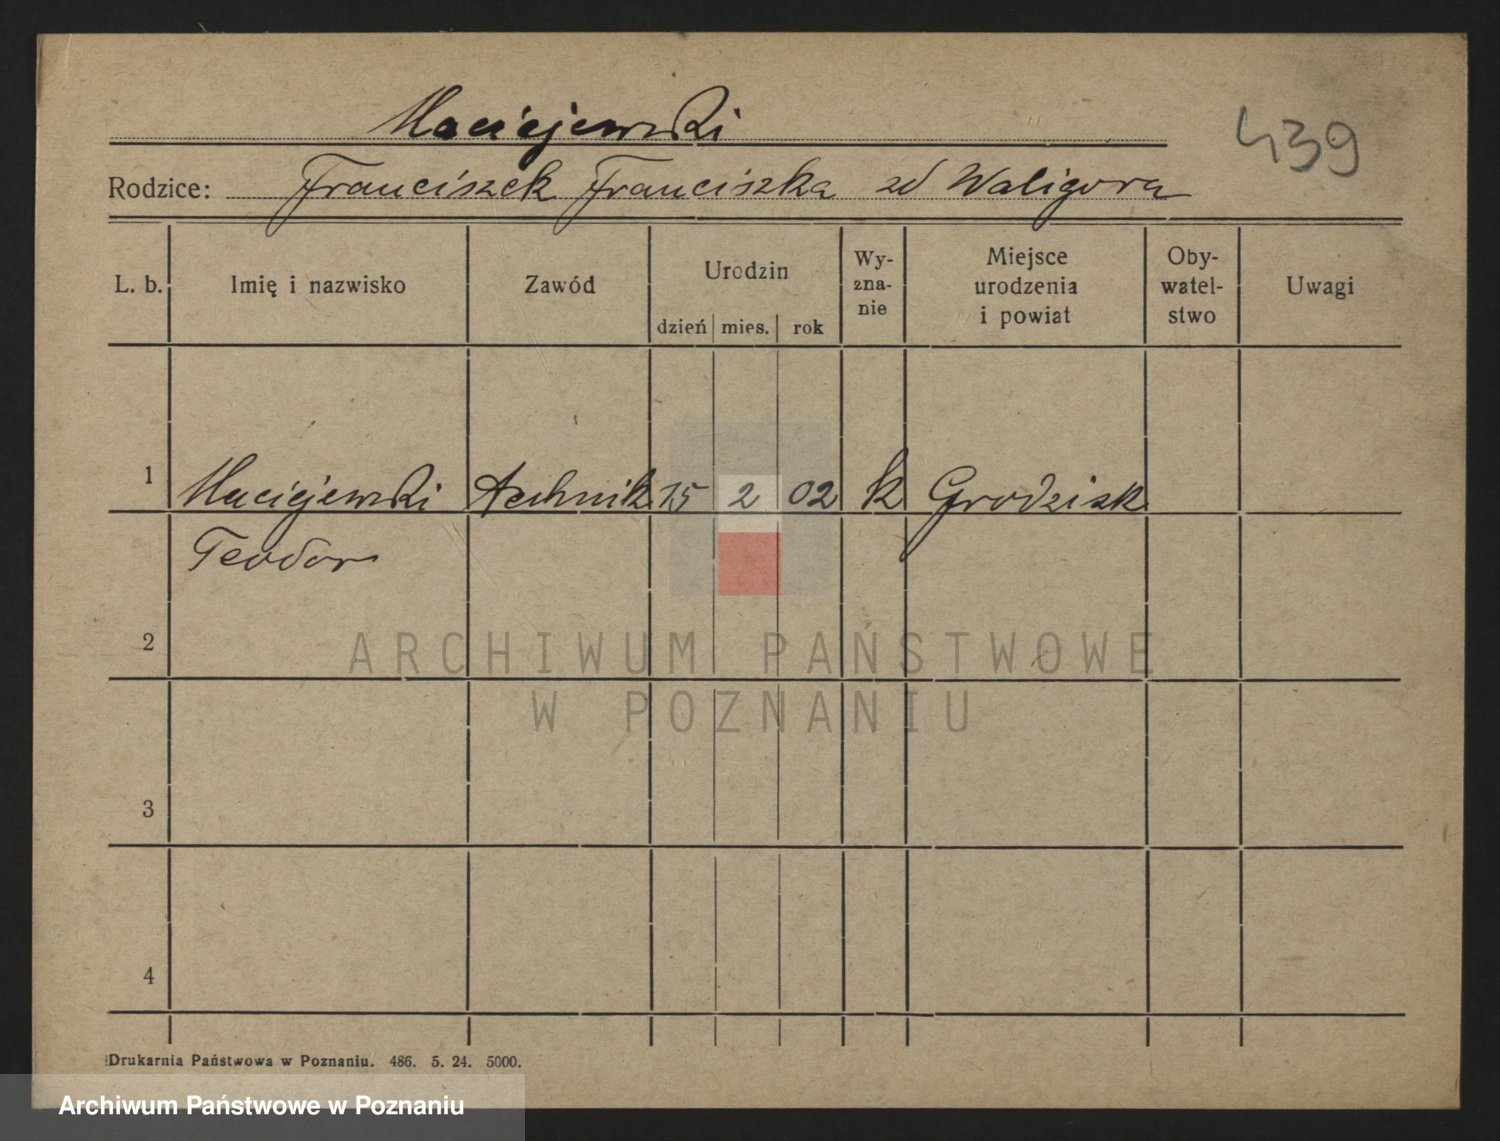 Maciejewski
439
Rodzice: Franciszek Franciszka zd Waligóra
L. b. Imię i nazwisko Zawód Urodzin dzień mies. rok Wy-znanie Miejsce urodzenia i powiat Oby-watel-stwo Uwagi
1 Maciejewski technik 15 2 02 k Grodzisk
Teodor
2
ARCHIWUM PAŃSTWOWE
W POZNANIU
3
4
Drukarnia Państwowa w Poznaniu. 486. 5. 24. 5000.
Archiwum Państwowe w Poznaniu